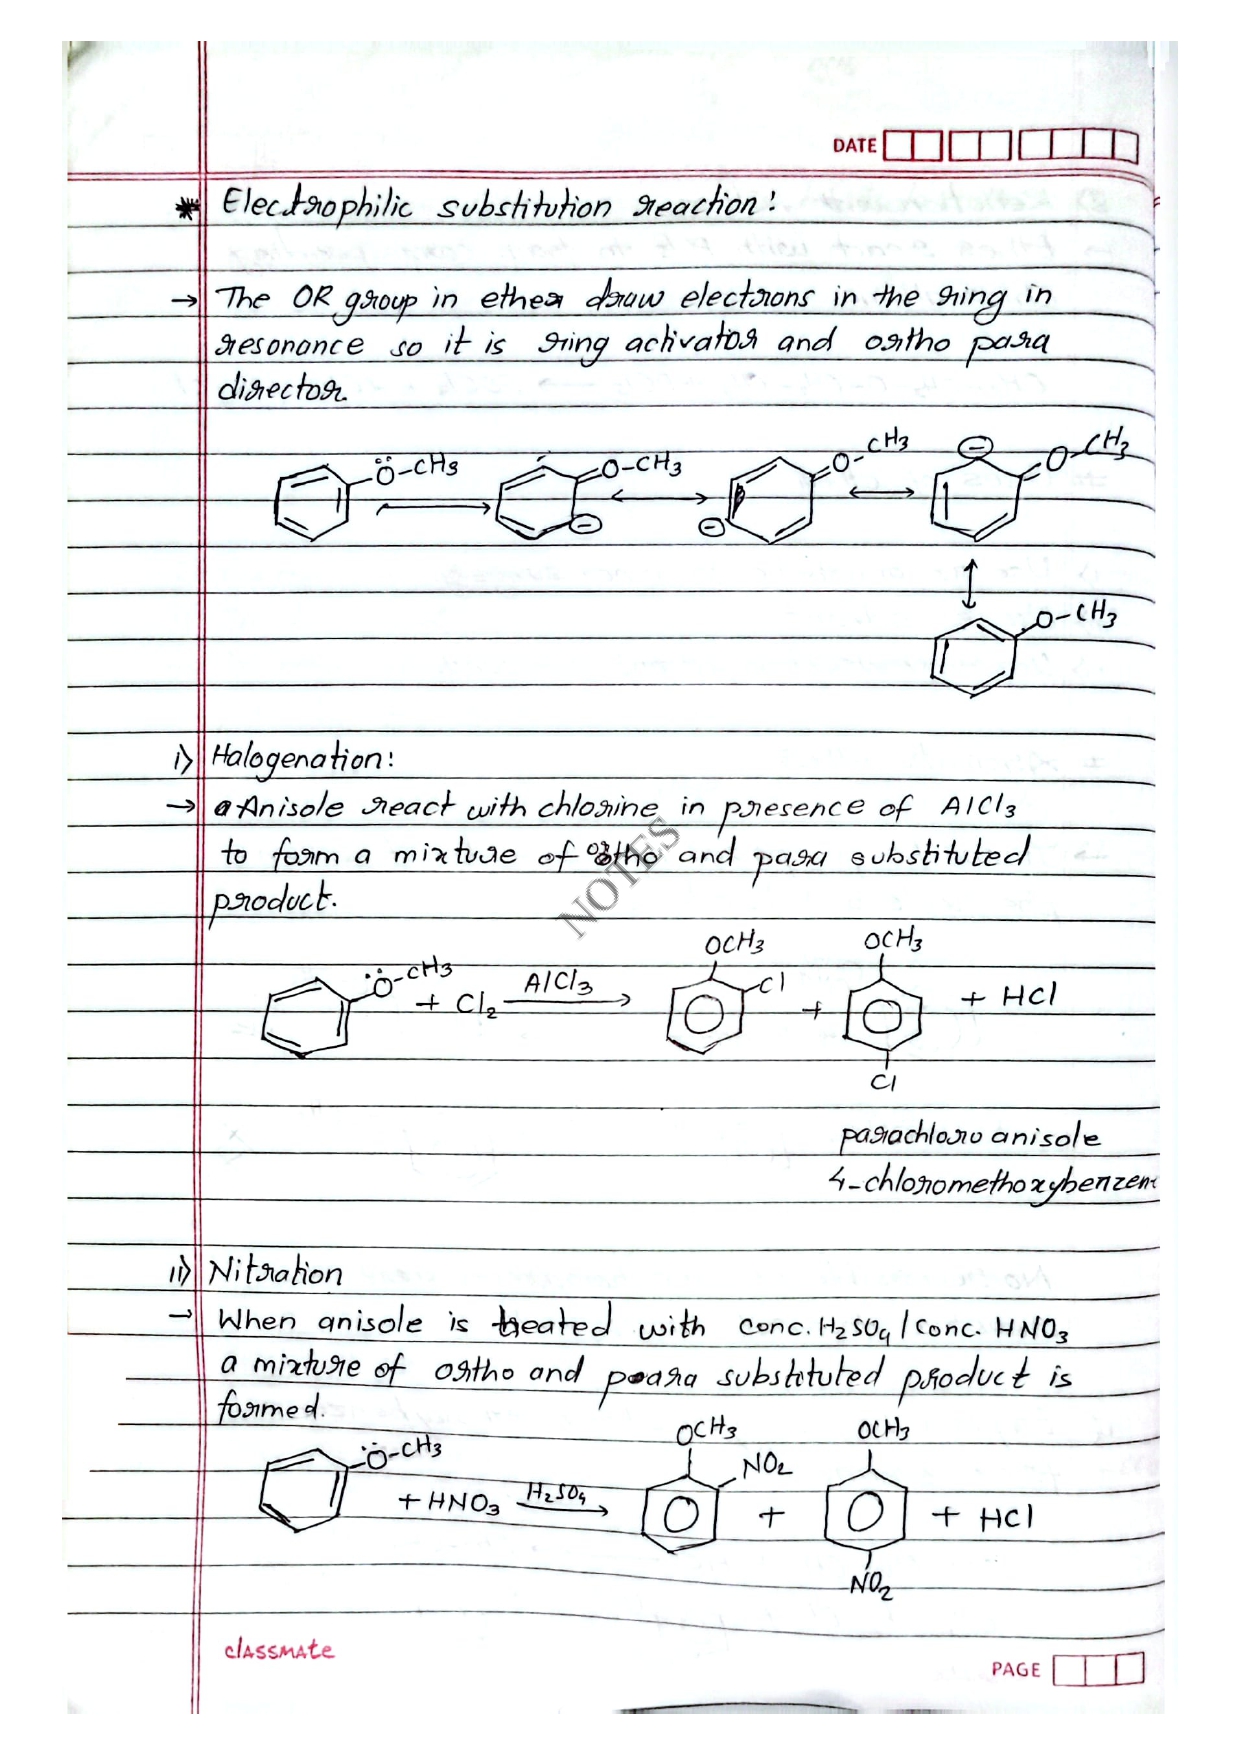 DATE
* Electrophilic substitution reaction:
→ The OR group in ether draw electrons in the ring in
resonance so it is ring activator and ortho para
director.
Ö-CH3 O-CH3 O-CH3 O-CH3
O-CH3
i) Halogenation:
→ Anisole react with chlorine in presence of AlCl3
to form a mixture of ortho and para substituted
product.
OCH3 OCH3
Ö-CH3 + Cl2 AlCl3 → Cl + + HCl
Cl
parachloro anisole
4-chloromethoxybenzene
ii) Nitration
→ When anisole is treated with conc. H2SO4 / conc. HNO3
a mixture of ortho and para substituted product is
formed.
OCH3 OCH3
Ö-CH3 + HNO3 H2SO4 → NO2 + + HCl
NO2
NOTES
classmate
PAGE